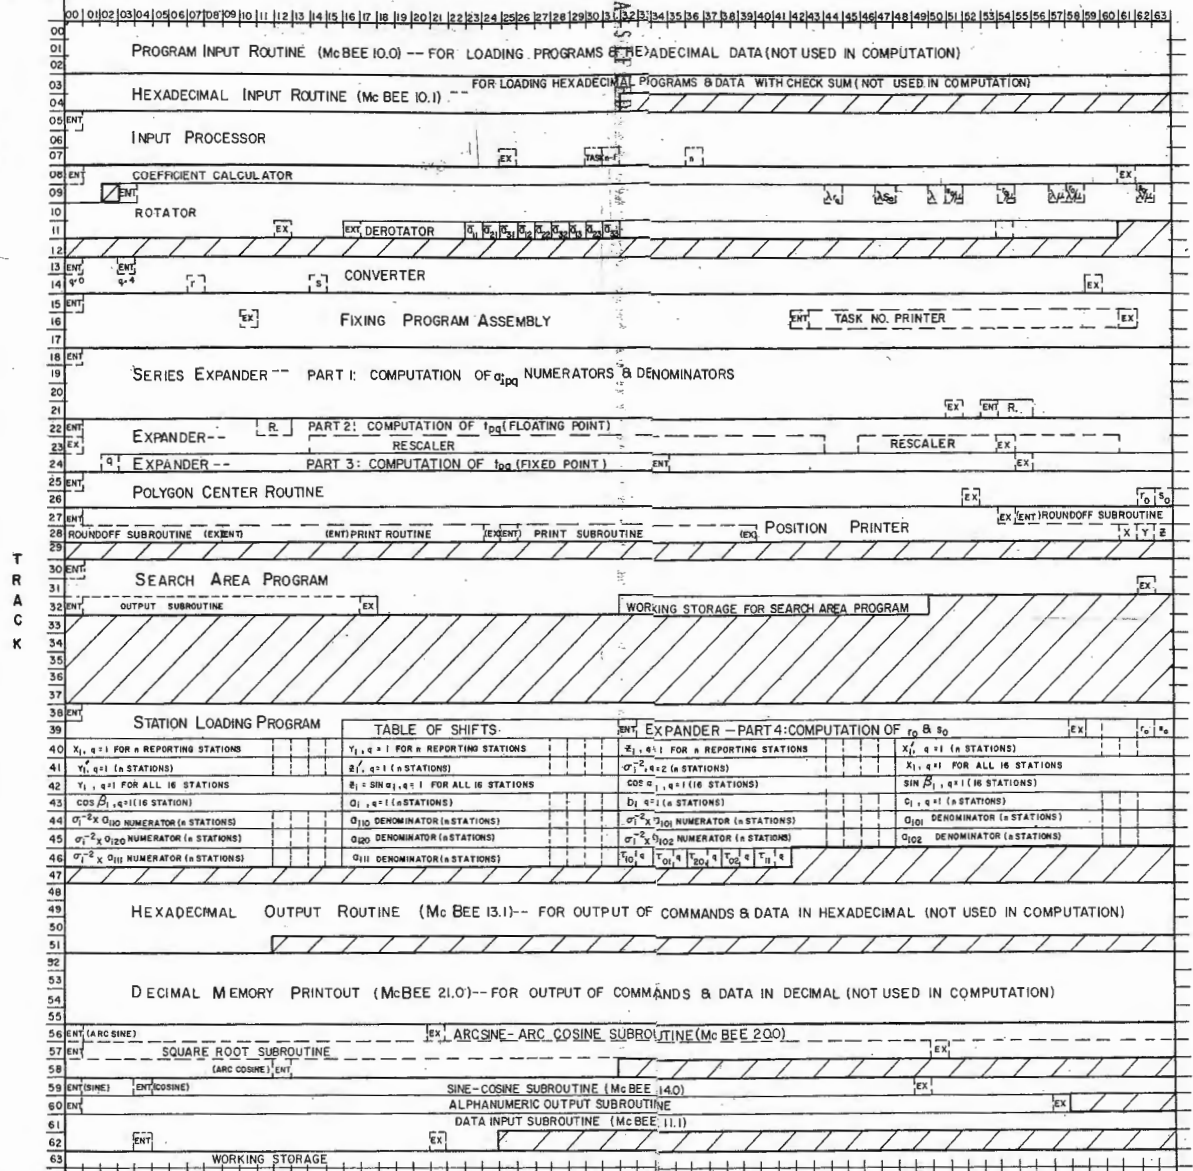 00 01 02 03 04 05 06 07 08 09 10 11 12 13 14 15 16 17 18 19 20 21 22 23 24 25 26 27 28 29 30 31 32 33 34 35 36 37 38 39 40 41 42 43 44 45 46 47 48 49 50 51 52 53 54 55 56 57 58 59 60 61 62 63
TRACK
00
01 PROGRAM INPUT ROUTINE (McBEE 10.0) -- FOR LOADING PROGRAMS & HEXADECIMAL DATA (NOT USED IN COMPUTATION)
02
03 FOR LOADING HEXADECIMAL PROGRAMS & DATA WITH CHECK SUM (NOT USED IN COMPUTATION)
04 HEXADECIMAL INPUT ROUTINE (Mc BEE 10.1) --
05 ENT
06 INPUT PROCESSOR
07 EX TASK n-1 n
08 ENT COEFFICIENT CALCULATOR EX
09 ENT
10 ROTATOR
11 EX EXT DEROTATOR
12
13 ENT ENT
q·0 q·4
14 r s CONVERTER EX
15 ENT
16 EX FIXING PROGRAM ASSEMBLY ENT TASK NO. PRINTER EX
17
18 ENT
19 SERIES EXPANDER -- PART 1: COMPUTATION OF αipq NUMERATORS & DENOMINATORS
20
21 EX ENT R.
22 ENT R. PART 2: COMPUTATION OF tpq (FLOATING POINT)
23 EX EXPANDER-- RESCALER RESCALER EX
24 q EXPANDER -- PART 3: COMPUTATION OF tpq (FIXED POINT) ENT EX
25 ENT
26 POLYGON CENTER ROUTINE EX r0 s0
27 ENT EX (ENT) ROUNDOFF SUBROUTINE
28 ROUNDOFF SUBROUTINE (EX)(ENT) (ENT) PRINT ROUTINE (EX)(ENT) PRINT SUBROUTINE (EX) POSITION PRINTER X Y Z
29
30 ENT
31 SEARCH AREA PROGRAM EX
32 ENT OUTPUT SUBROUTINE EX WORKING STORAGE FOR SEARCH AREA PROGRAM
33
34
35
36
37
38 ENT
39 STATION LOADING PROGRAM TABLE OF SHIFTS ENT EXPANDER – PART 4: COMPUTATION OF r0 & s0 EX r0 s0
40 X1, q=1 FOR n REPORTING STATIONS Y1, q=1 FOR n REPORTING STATIONS Z1, q=1 FOR n REPORTING STATIONS X1', q=1 (n STATIONS)
41 Y1', q=1 (n STATIONS) Z1', q=1 (n STATIONS) σ1⁻², q=2 (n STATIONS) X1, q=1 FOR ALL 16 STATIONS
42 Y1, q=1 FOR ALL 16 STATIONS Z1 = SIN α1, q=1 FOR ALL 16 STATIONS COS α1, q=1 (16 STATIONS) SIN β1, q=1 (16 STATIONS)
43 COS β1, q=1 (16 STATION) a1, q=1 (n STATIONS) b1 q=1 (n STATIONS) c1, q=1 (n STATIONS)
44 σ1⁻² X α110 NUMERATOR (n STATIONS) α110 DENOMINATOR (n STATIONS) σ1⁻² X α101 NUMERATOR (n STATIONS) α101 DENOMINATOR (n STATIONS)
45 σ1⁻² X α120 NUMERATOR (n STATIONS) α120 DENOMINATOR (n STATIONS) σ1⁻² X α102 NUMERATOR (n STATIONS) α102 DENOMINATOR (n STATIONS)
46 σ1⁻² X α111 NUMERATOR (n STATIONS) α111 DENOMINATOR (n STATIONS) T10, q T01, q T20, q T02, q T11, q
47
48
49 HEXADECIMAL OUTPUT ROUTINE (Mc BEE 13.1)-- FOR OUTPUT OF COMMANDS & DATA IN HEXADECIMAL (NOT USED IN COMPUTATION)
50
51
52
53 DECIMAL MEMORY PRINTOUT (McBEE 21.0)-- FOR OUTPUT OF COMMANDS & DATA IN DECIMAL (NOT USED IN COMPUTATION)
54
55
56 ENT (ARC SINE) EX ARCSINE- ARC COSINE SUBROUTINE (Mc BEE 20.0)
57 ENT SQUARE ROOT SUBROUTINE EX
58 (ARC COSINE) ENT
59 ENT (SINE) ENT (COSINE) SINE-COSINE SUBROUTINE (Mc BEE 14.0) EX
60 ENT ALPHANUMERIC OUTPUT SUBROUTINE EX
61 DATA INPUT SUBROUTINE (Mc BEE 11.1)
62 ENT EX
63 WORKING STORAGE